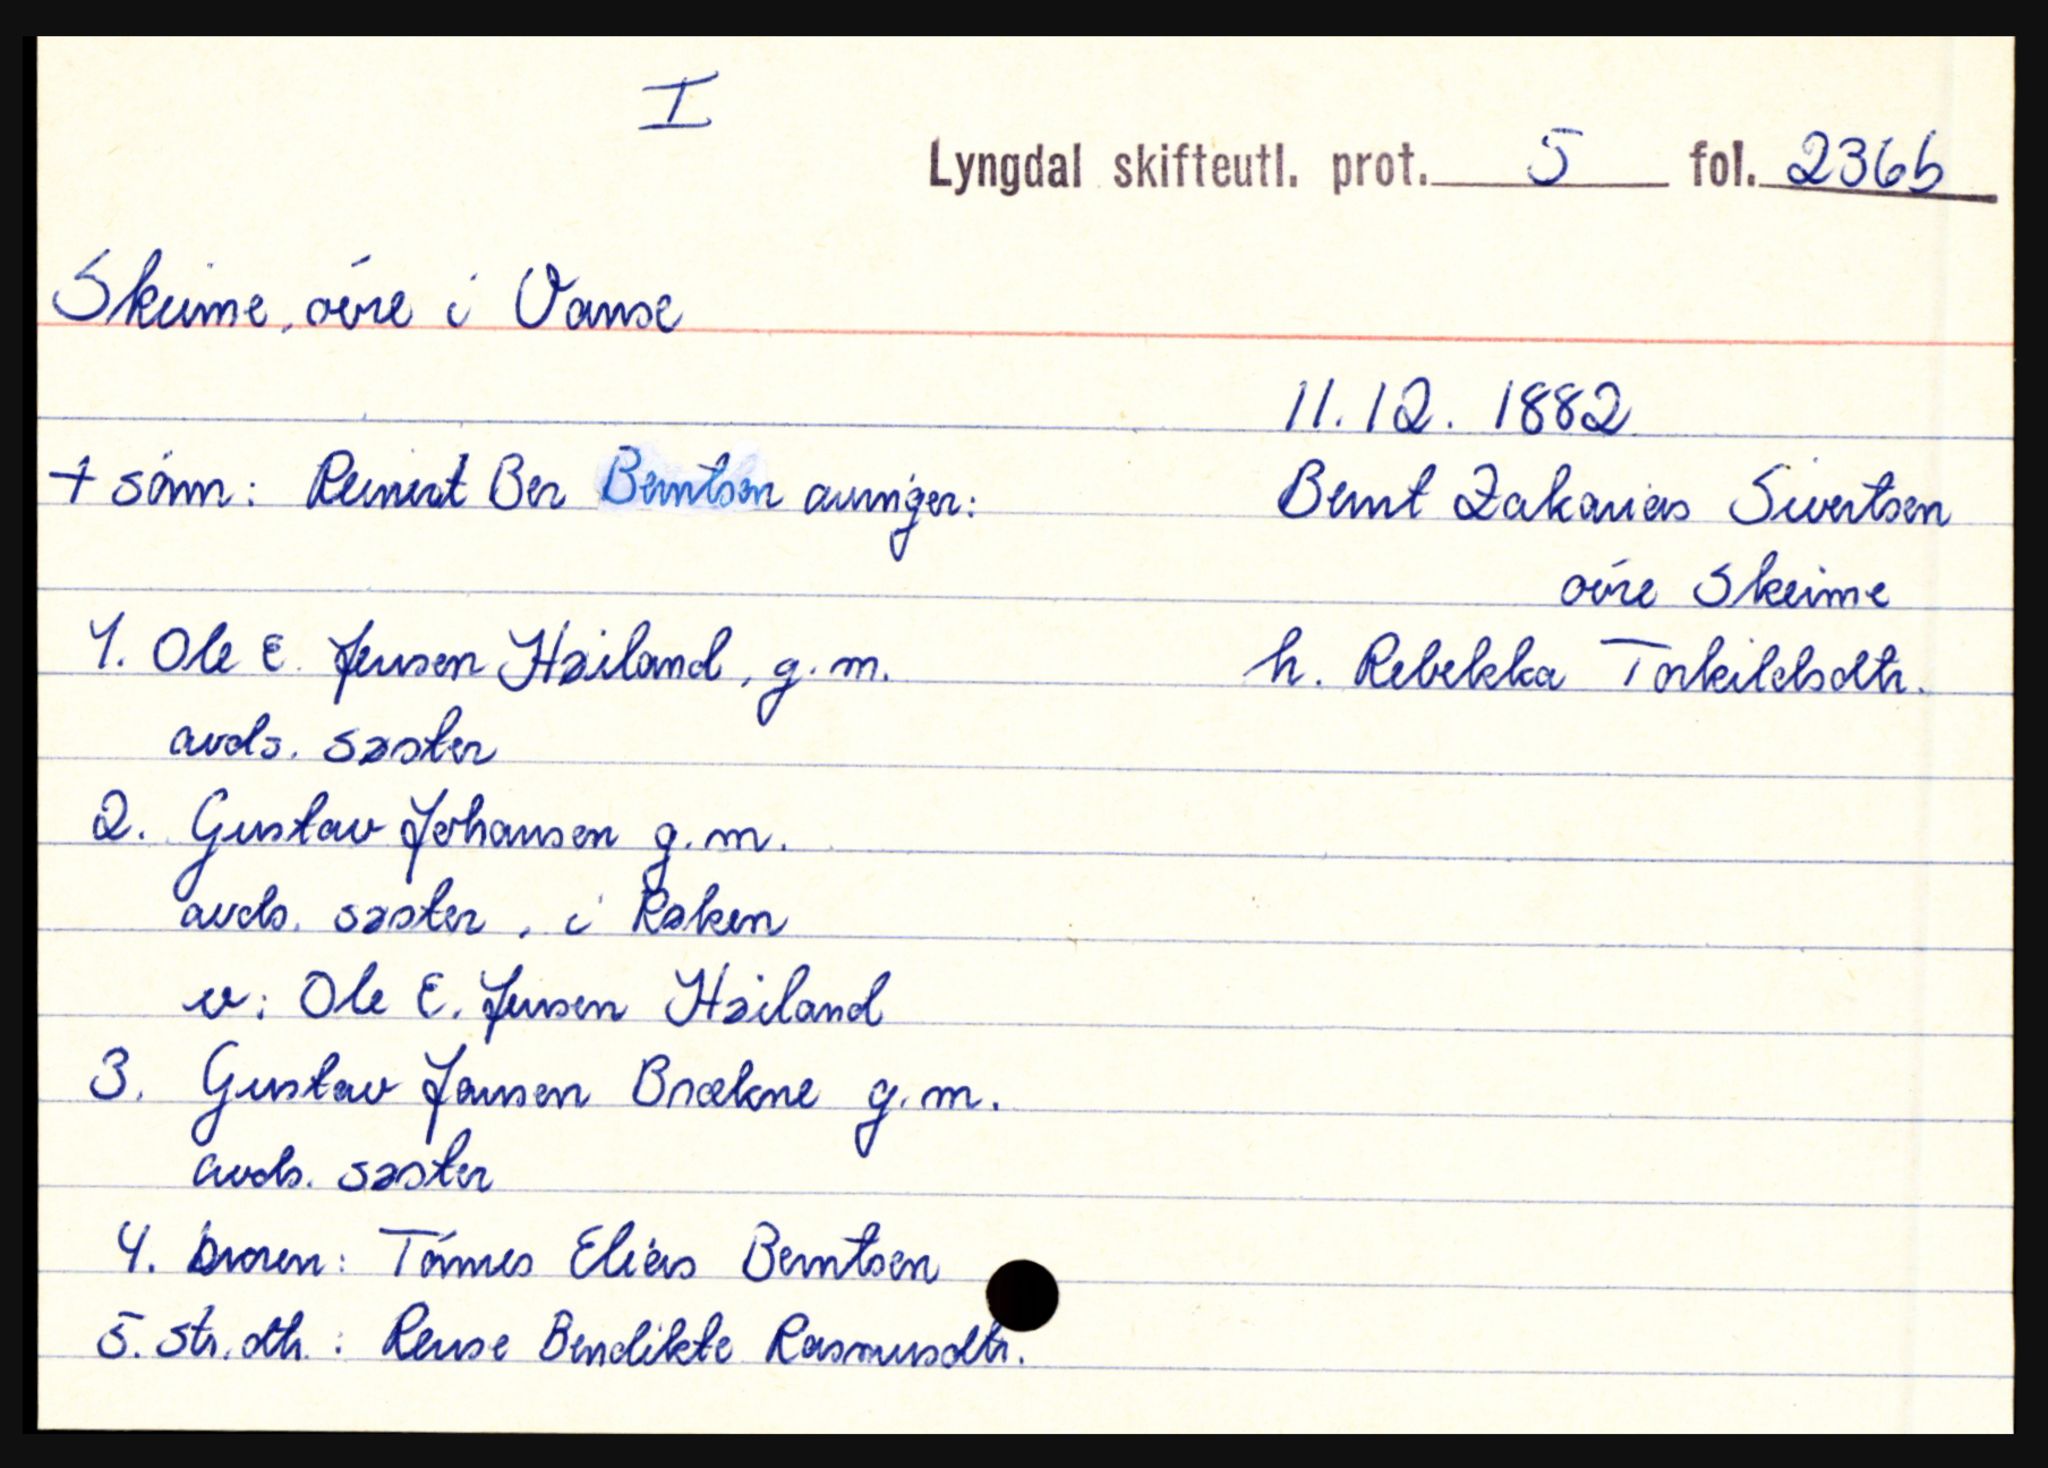 I
Lyngdal skifteutl. prot. 5 fol. 236b
Skeime, óvre i Vanse
11.12. 1882
+ sónn: Reinert Ber Berntsen arvinger:
Bernt Zakarias Sivertsen
óvre Skeime
1. Ole E. Jensen Høiland, g.m.
h. Rebekka Torkildsdtr.
avds. søster
2. Gustav Johansen g.m.
avds. søster, i Røken
v: Ole E. Jensen Høiland
3. Gustav Jansen Brækne g.m.
avds. søster
4. broren: Tónnes Elias Berntsen
5. str. dtr.: Rense Bendikte Rasmusdtr.